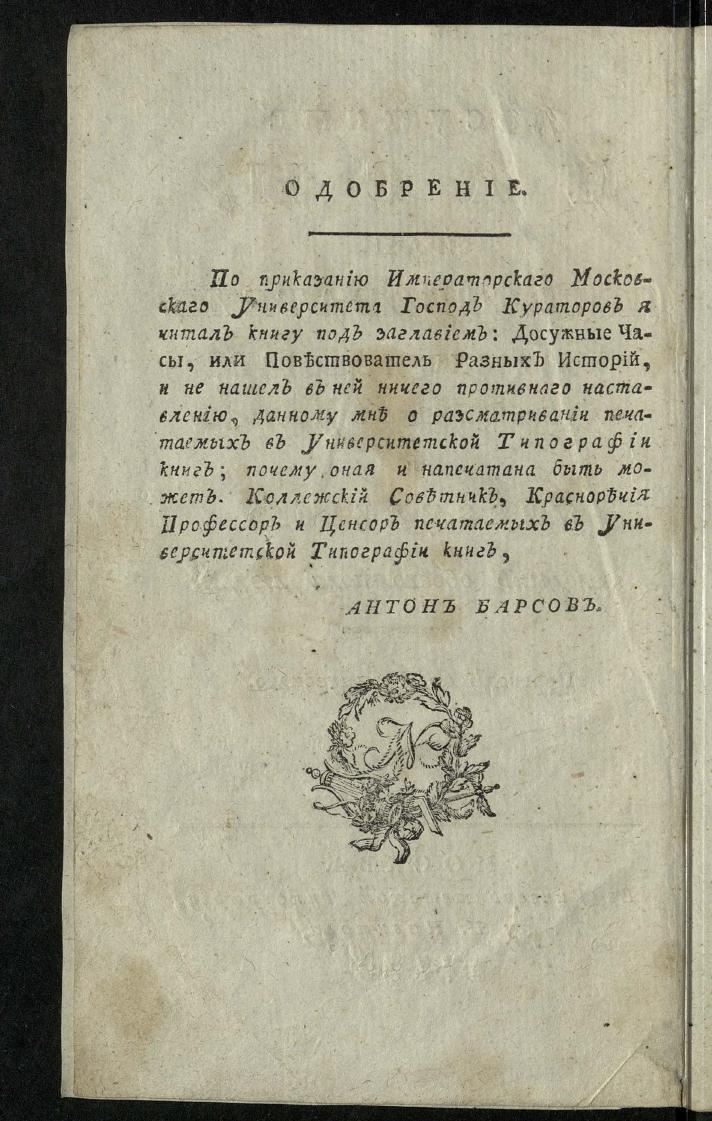 ОДОБРЕНІЕ.
По приказанію Императорскаго Москов-
скаго Университета Господъ Кураторовъ я
читалъ книгу подъ заглавіемъ: Досужные Ча-
сы, или Повѣствователь Разныхъ Исторій,
и не нашелъ въ ней ничего противнаго наста-
вленію, данному мнѣ о разсматриваніи печа-
таемыхъ въ Университетской Типографіи
книгъ; почему оная и напечатана быть мо-
жетъ. Коллежскій Совѣтникъ, Краснорѣчія
Профессоръ и Ценсоръ печатаемыхъ въ Уни-
верситетской Типографіи книгъ,
АНТОНЪ БАРСОВЪ.